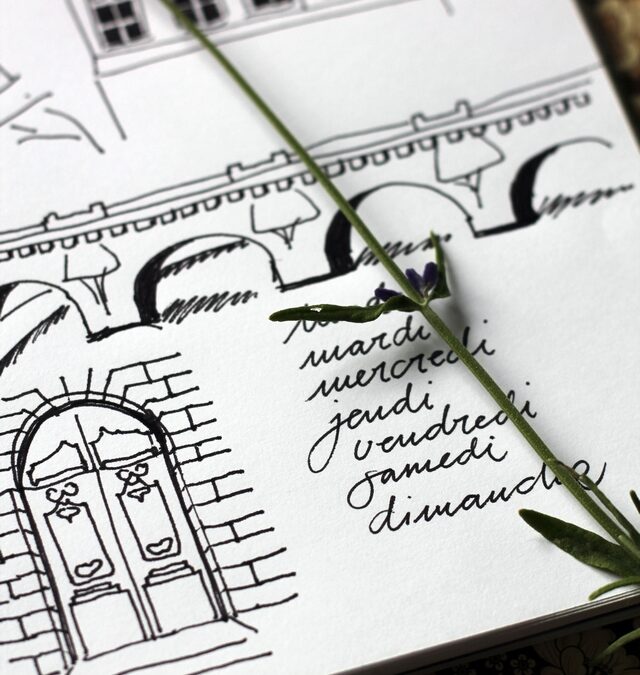 mardi
mercredi
jeudi
vendredi
samedi
dimanche